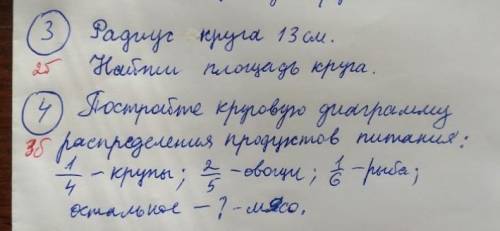 ③ Радиус круга 13 см.
2б Найти площадь круга.
④ Постройте круговую диаграмму
3б распределения продуктов питания:
1/4 - крупы; 2/5 - овощи; 1/6 - рыба;
остальное - ? - мясо.